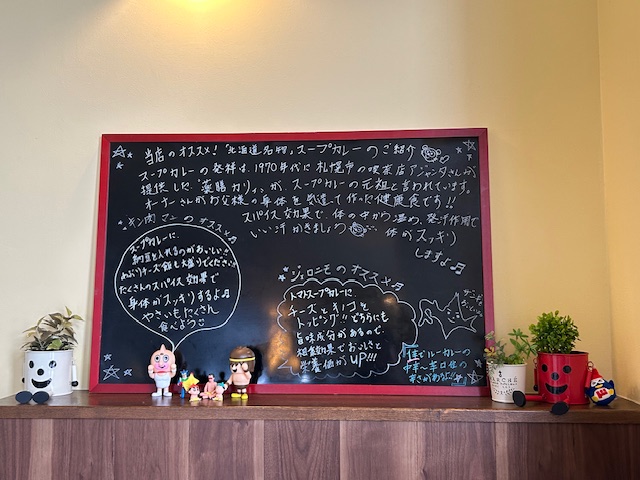 当店のオススメ!「北海道名物」スープカレーのご紹介
スープカレーの発祥は、1970年代に札幌市の喫茶店アジャンタさんが
提供した"薬膳カリィ"が、スープカレーの元祖と言われています。
オーナーさんがお父様の身体を気遣って作った健康食です!!
スパイス効果で、体の中から温め、発汗作用で
いい汗かきましょう
体がスッキリ
しますよ♬
キン肉マンのオススメ♬
スープカレーに、
納豆を入れるのがおいしい!
チーズ
飯も大盛りでください!
たくさんのスパイス効果で
身体がスッキリするよ♬
やさいもたくさん
食べよう
ジェロニモのオススメ♬
トマトスープカレーに、
チーズとキノコを
トッピング!!どちらにも
旨味成分があるので、
相乗効果でおいしさと
栄養価がUP!!!
ルーカレーの
中辛〜辛口位の
辛さがあるよ